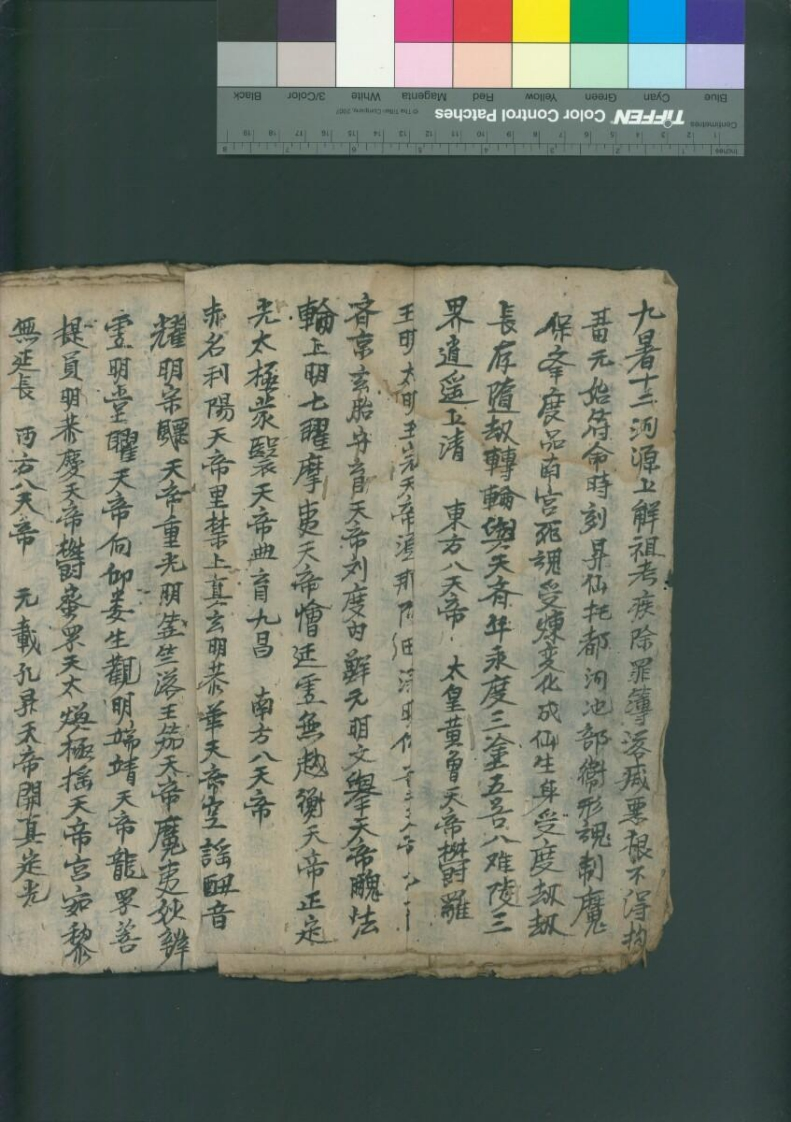 九暑十二河源上解祖考疾除罪簿落滅惡根不得拘
畱元始符命時刻昇仙托都河池部衛形魂制魔
保舉度品南宮死魂受煉变化成仙生身受度劫劫
長存隨劫轉輪與天齊年永度三途五苦八难陵三
界逍遥上清 東方八天帝 太皇黄曾天帝欝羅
玉明太明玉完天帝須那
容京玄胎平育天帝刘度内鮮元明文舉天帝醜法
輪上明七曜摩夷天帝懀延雲無越衡天帝正定
光太極蒙翳天帝典育九昌 南方八天帝
赤名利陽天帝里禁上真玄明恭華天帝空謠醜音
耀明宗飄天帝重光明竺落王笳天帝魔夷妙辯
雲明堂曜天帝向仰娄生觀明端靖天帝龍罗善
提員明恭慶天帝欝羅天太煥極揺天帝宮宛黎
無延長 西方八天帝 元載孔昇天帝開真定光
TIFFEN Color Control Patches
© The Tiffen Company, 2007
Centimetres
Inches
Blue Cyan Green Yellow Red Magenta White 3/Color Black